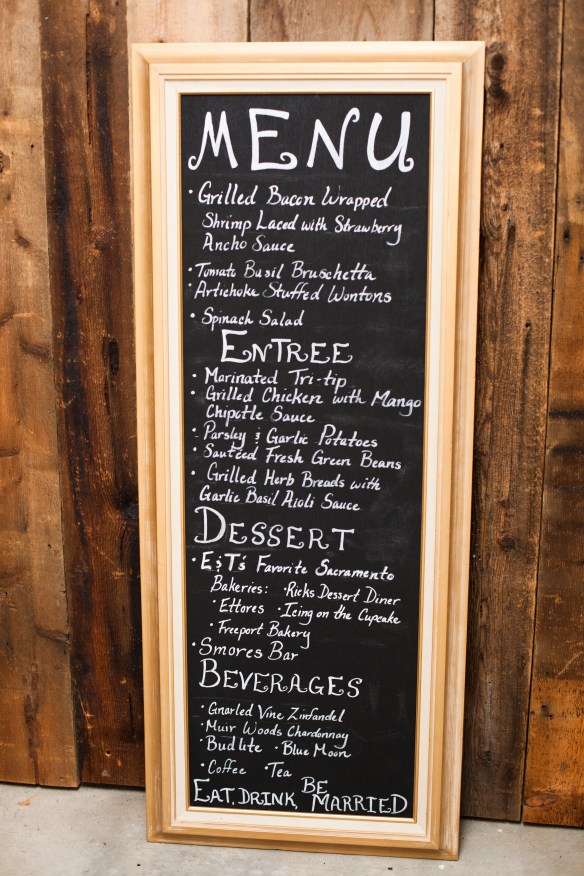 MENU
• Grilled Bacon Wrapped
Shrimp Laced with Strawberry
Ancho Sauce
• Tomato Basil Bruschetta
• Artichoke Stuffed Wontons
• Spinach Salad
ENTREE
• Marinated Tri-tip
• Grilled Chicken with Mango
Chipotle Sauce
• Parsley & Garlic Potatoes
• Sauteed Fresh Green Beans
• Grilled Herb Breads with
Garlic Basil Aioli Sauce
DESSERT
• E&T's Favorite Sacramento
Bakeries: • Ricks Dessert Diner
• Ettores • Icing on the Cupcake
• Freeport Bakery
• Smores Bar
BEVERAGES
• Gnarled Vine Zinfandel
• Muir Woods Chardonnay
• Bud lite • Blue Moon
• Coffee • Tea
EAT, DRINK, BE MARRIED